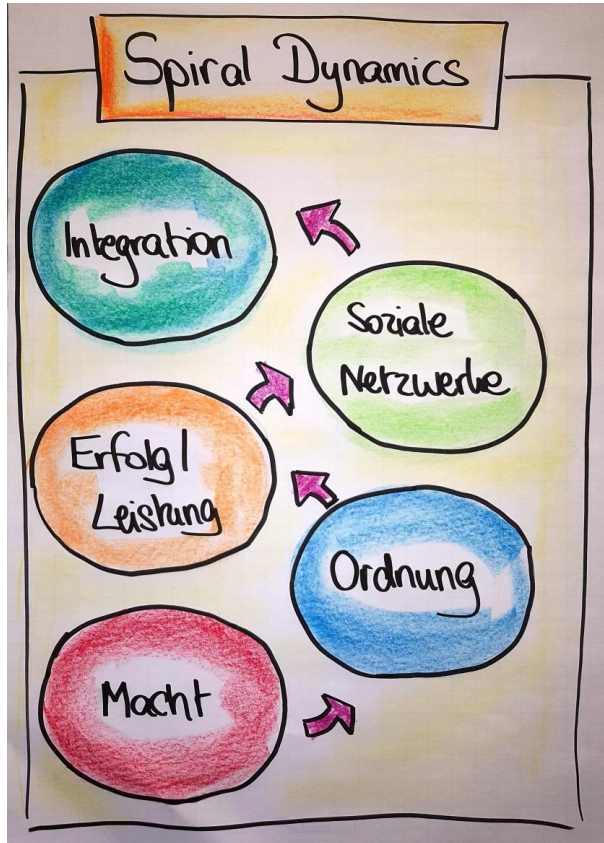 Spiral Dynamics
Integration
Soziale
Netzwerke
Erfolg/
Leistung
Ordnung
Macht